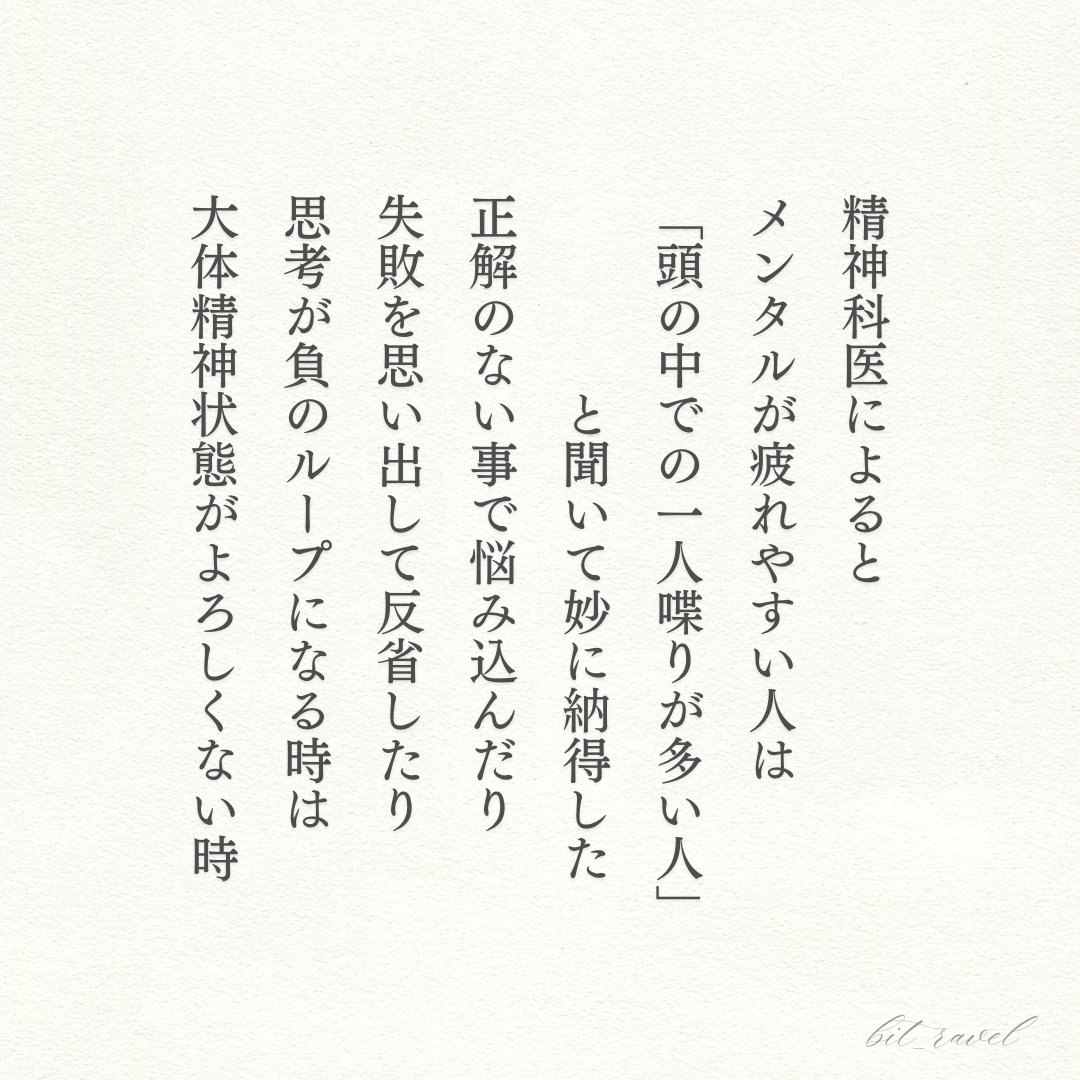 精神科医によると
メンタルが疲れやすい人は
「頭の中での一人喋りが多い人」
と聞いて妙に納得した
正解のない事で悩み込んだり
失敗を思い出して反省したり
思考が負のループになる時は
大体精神状態がよろしくない時
bit_ravel